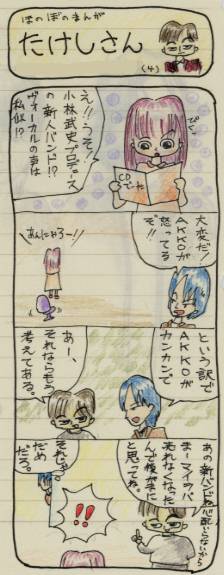 ほのぼのまんが
たけしさん
(4)
え!!うそ!
小林武史プロデュース
の新人バンド!?
ヴォーカルの声は
私似!?
CD
でーた
大変だ!
AKKOが
怒ってる
ぞ!!
あんにゃろー!!
という訳で
AKKOが
カンカンで
あー、
それならもう
考えてある。
あの新バンドね心配いらないから
まーマイラバ
売れなくなった
んで後がまに
と思ってね。
それじゃ
だめ
だろ。
!!